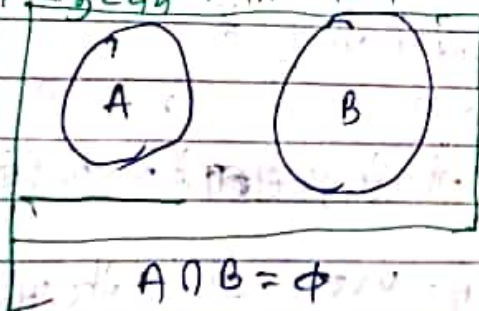 A B
A ∩ B = ϕ